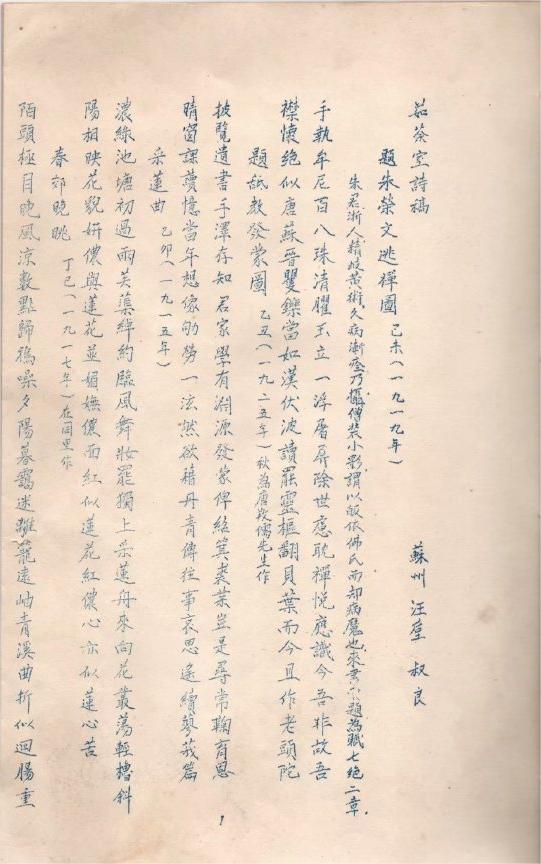 茹葵室詩稿
蘇州 汪 叔良
題朱榮文逃禪圖 己未(一九一九年)
朱君浙人精岐黃術久病漸瘥乃攝僧裝小影謂以皈依佛氏而却病魔也來書索題為賦七絕二章.
手執牟尼百八珠清臞玉立一浮屠屏除世慮耽禪悅應識今吾非故吾
襟懷絕似唐蘇晉矍鑠當如漢伏波讀罷靈樞翻貝葉而今且作老頭陀
題紙教發蒙圖 乙丑(一九二五年)秋為唐儒先生作
披覽遺書手澤存知君家學有淵源發蒙俾紹箕裘業豈是尋常鞠育恩
晴窗課讀憶當年想像劬勞一泫然欲藉丹青傳往事哀思遙續蓼莪篇
采蓮曲 乙卯(一九一五年)
濃綠池塘初過雨芙蕖綽約臨風舞妝罷獨上采蓮舟來向花叢蕩輕槽斜
陽相映花貌妍儂與蓮花並媚嫵儂面紅似蓮花紅儂心亦似蓮心苦
春郊晚眺 丁巳(一九一七年)在同里作
陌頭極目晚風涼數點歸鴉噪夕陽暮靄迷離籠遠岫青溪曲折似迴腸重
1